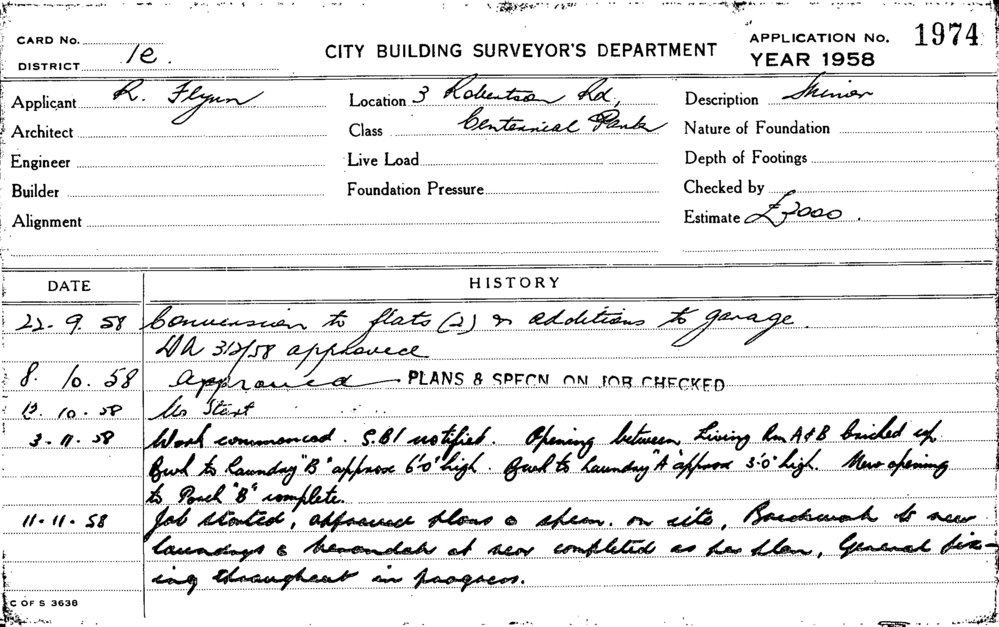 CARD No.
DISTRICT 1e.
CITY BUILDING SURVEYOR'S DEPARTMENT
APPLICATION No. 1974
YEAR 1958
Applicant R. Flynn
Location 3 Robertson Rd,
Description Minor
Architect
Class Centennial Park
Nature of Foundation
Engineer
Live Load
Depth of Footings
Builder
Foundation Pressure
Checked by
Alignment
Estimate £3000.
DATE HISTORY
22. 9. 58 Conversion to flats (2) & additions to garage.
DA 312/58 approved
8. 10. 58 Approved PLANS & SPECN ON JOB CHECKED
10. 58 No Start
3. 11. 58 Work commenced. S.B.I notified. Opening between Living Rm A & B bricked up.
Bwk to Laundry "B" approx 6'0" high. Bwk to Laundry "A" approx 3'0" high. New opening
to Porch "B" complete.
11. 11. 58 Job started, approved plans & specn. on site, Brickwork to new
laundrys & verandah at rear completed as per plan, General fix-
ing throughout in progress.
C OF S 3638